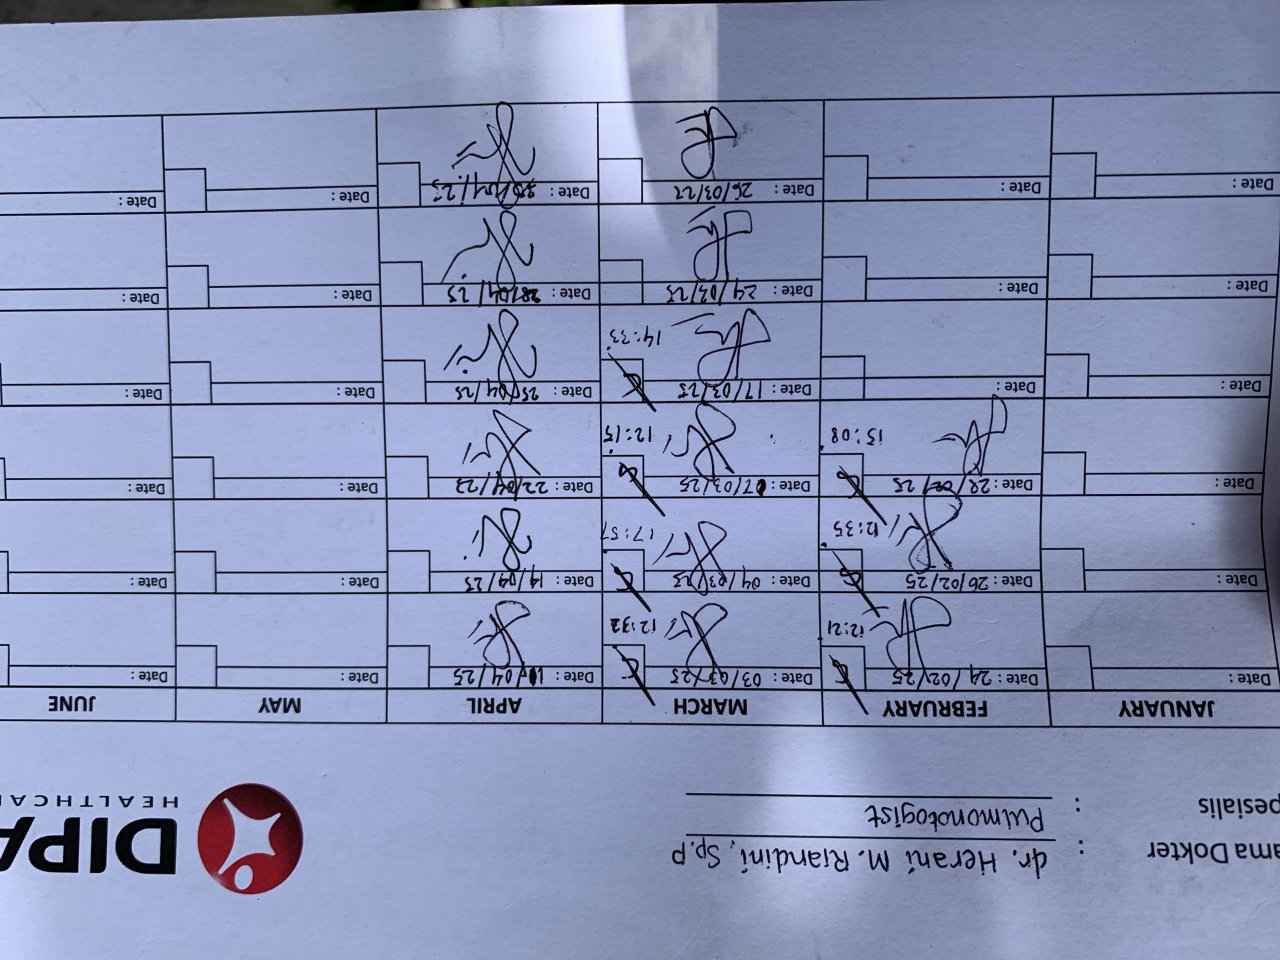 ama Dokter : dr. Herani M. Riandini, Sp.P
pesialis : Pulmonologist
DIPA
HEALTHCA
JANUARY FEBRUARY MARCH APRIL MAY JUNE
Date : Date : 24/02/25 Date : 03/03/25 Date : /04/25 Date : Date :
12:21 12:32
Date : Date : 26/02/25 Date : 04/03/25 Date : 14/04/25 Date : Date :
12:35 17:57
Date : Date : 28/02/25 Date : 07/03/25 Date : 22/04/25 Date : Date :
15:08 12:15
Date : Date : Date : 17/03/25 Date : 25/04/25 Date : Date :
14:33
Date : Date : Date : 24/03/25 Date : 28/04/25 Date : Date :
Date : Date : Date : 26/03/25 Date : Date : Date :